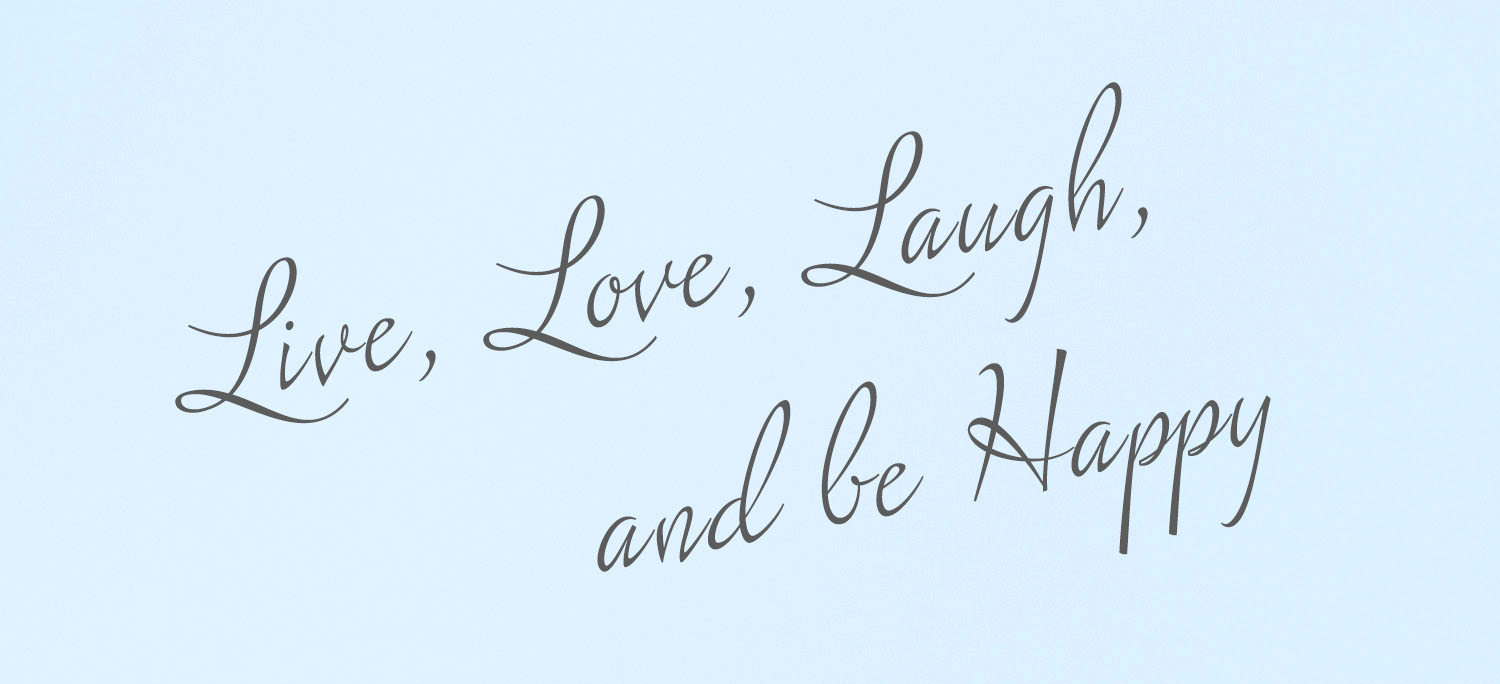 Live, Love, Laugh,
and be Happy